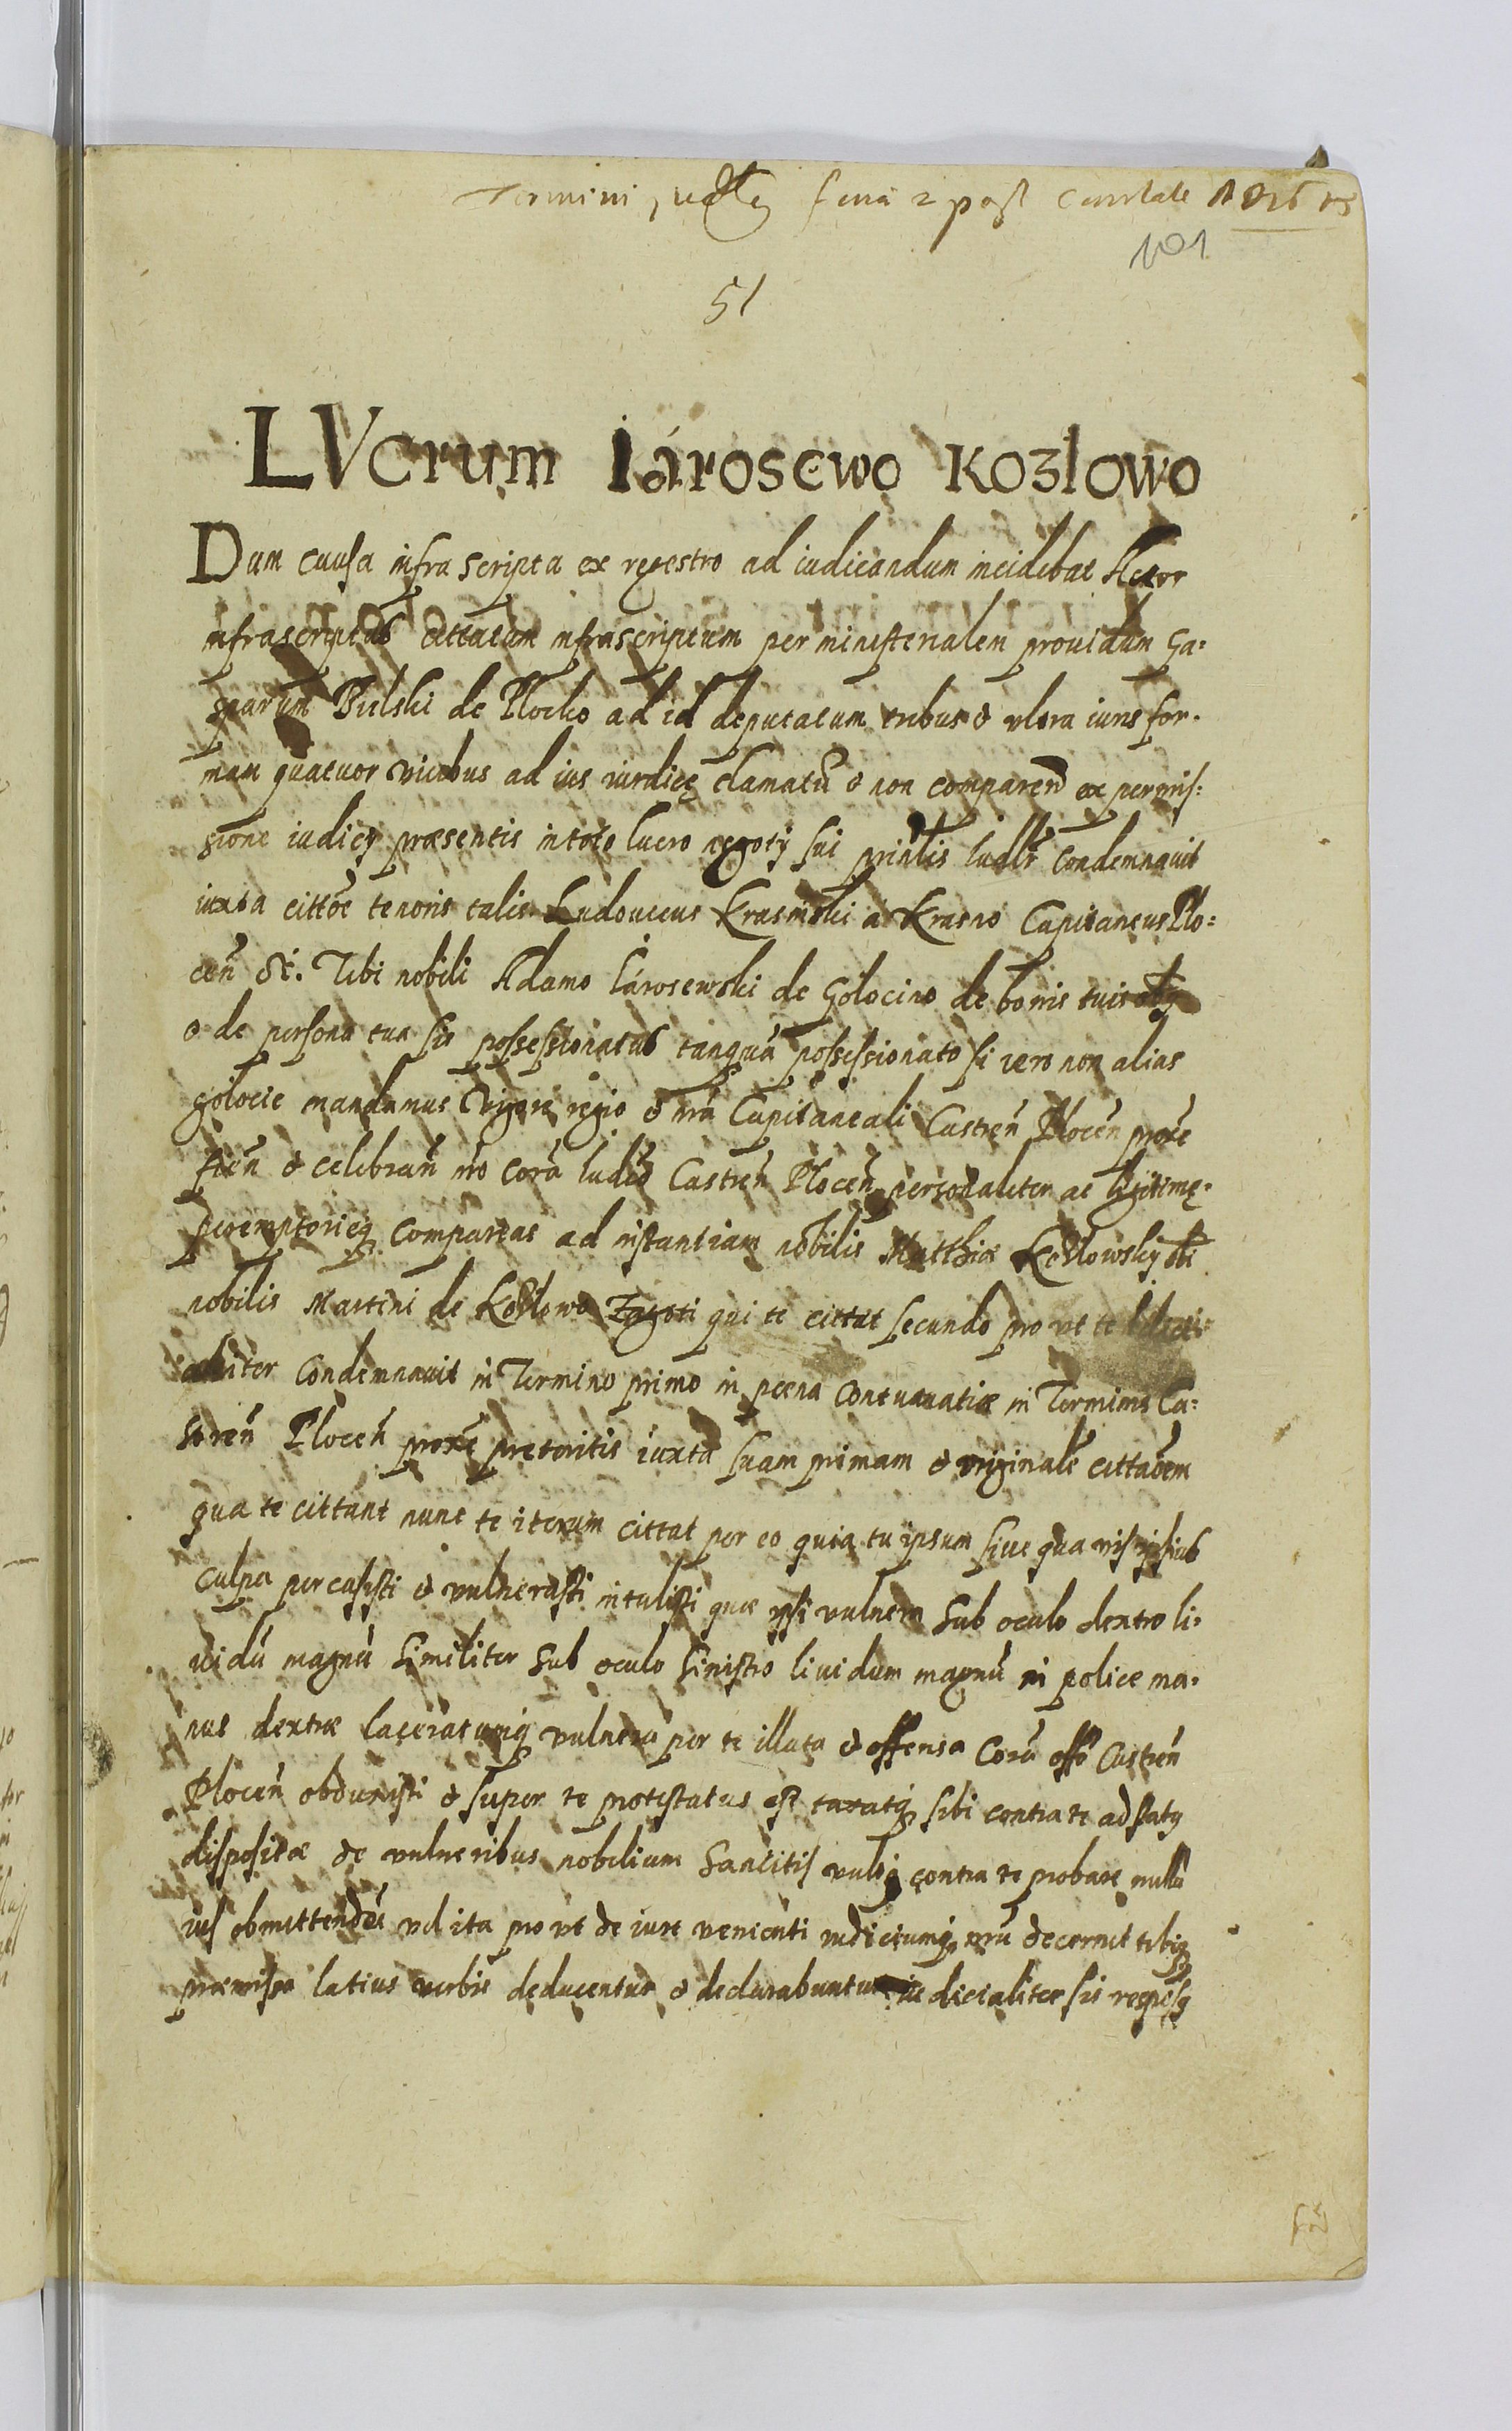 Termini feria 2 post
101
51
LVcrum Iárosewo Kozlowo
Dum causa infra scripta ex regestro ad iudicandum incidebat Actor
infrascriptus cittatum infrascriptum per ministerialem prouidum Ga-
sparum Bielski de Plocko ad id deputatum tribus & vltra iuris for-
mam quatuor vicibus ad ius iuridicę clamatū & non comparen̄ ex permis-
sione iudicy præsentis in toto lucro negotÿ sui prinlis Iudlr condemnauit
iuxta cittõe tenoris talis Ludouicus Krasinski a Krasno Capitaneus Plo-
cen̄ &c. Tibi nobili Adamo Iárosewski de Golocino de bonis tuis
& de persona tua sis possessionatus tanquā possessionato si vero non alias
golocie mandamus Vigore regio & nrā Capitaneali Castren̄ Plocen̄ proxe
fien̄ & celebran̄ nro corā Iudio Castren̄ Plocen̄ personaliter ac legitimę-
peremptorieq compareas ad instantiam nobilis Matthiæ Kozlowskÿ olī
nobilis Martini de Kozlowo qui te cittat secundo pro vt te Iudici-
aliter Condemnauit in Termino primo in pœna Contumatiæ in Terminis Ca-
stren̄ Plocen̄ proxe preteritis iuxta suam primam & originalē cittaõem
qua te cittant nunc te iterum cittat per eo quia tu ipsum siue qua vis ipsius
Culpa percusisti & vulnerasti intulisti quæ ipsi vulnera Sub oculo dextro li-
uidū magnū Similiter Sub oculo Sinistro liuidum magnū in police ma-
nus dextræ laceratumq vulnera per te illata & offensa Corā offo Castren̄
Plocen̄ obduxisti & super te protestatus est taxatq sibi contra te ad statq
dispositæ de vulneribus nobilium Sancitis vultq contra te probare nullū
ius obmittendū vel ita pro vt de iure venienti iudiciumq nrū decernet tibiq
præmissa latius verbis deducentur & declarabuntur iudicialiter sis respōsq
52